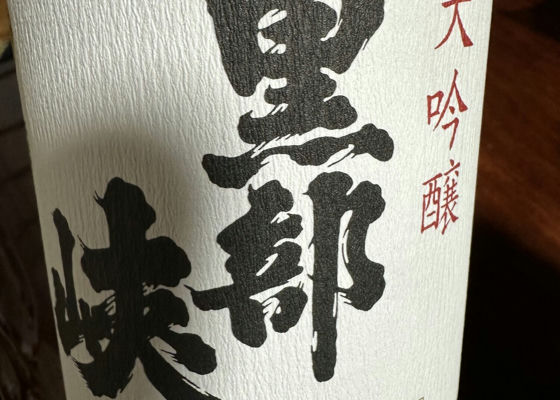 大吟醸
黒部
峡